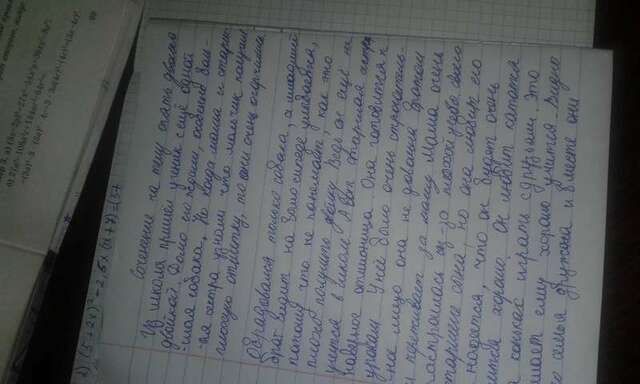 2) (5+2x)² - 2,5x (x+7) = (5+
Соченение на тему опять двойка
Из школы пришёл ученик с ещё одной
двойкой. Дома его ждали, особенно боль-
шая собака. Но когда мама и старш-
ая сестра узнали что мальчик получил
плохую отметку, то они очень огорчились
Обрадовался только собака, а младший
брат сидит на велосипеде улыбается,
потому что не панемает, как это
плохо получить двойку. Ведь он ещё не
учится в школе. А вот старшая сестра
наверное отличница. Она готовится к
урокам У неё было очень строгитель-
ное лицо она не довольна братом
и переживает за маму Мама очень
расстроилась из-за плохой учёбы своего
старшего сына, но она любит его
надеется, что он будят очень
учится хорошо. Он любит катотся
на коньках играть с друзьями. Это
мешает ему хорошо учится. Видно
его семья дружная и вместе они